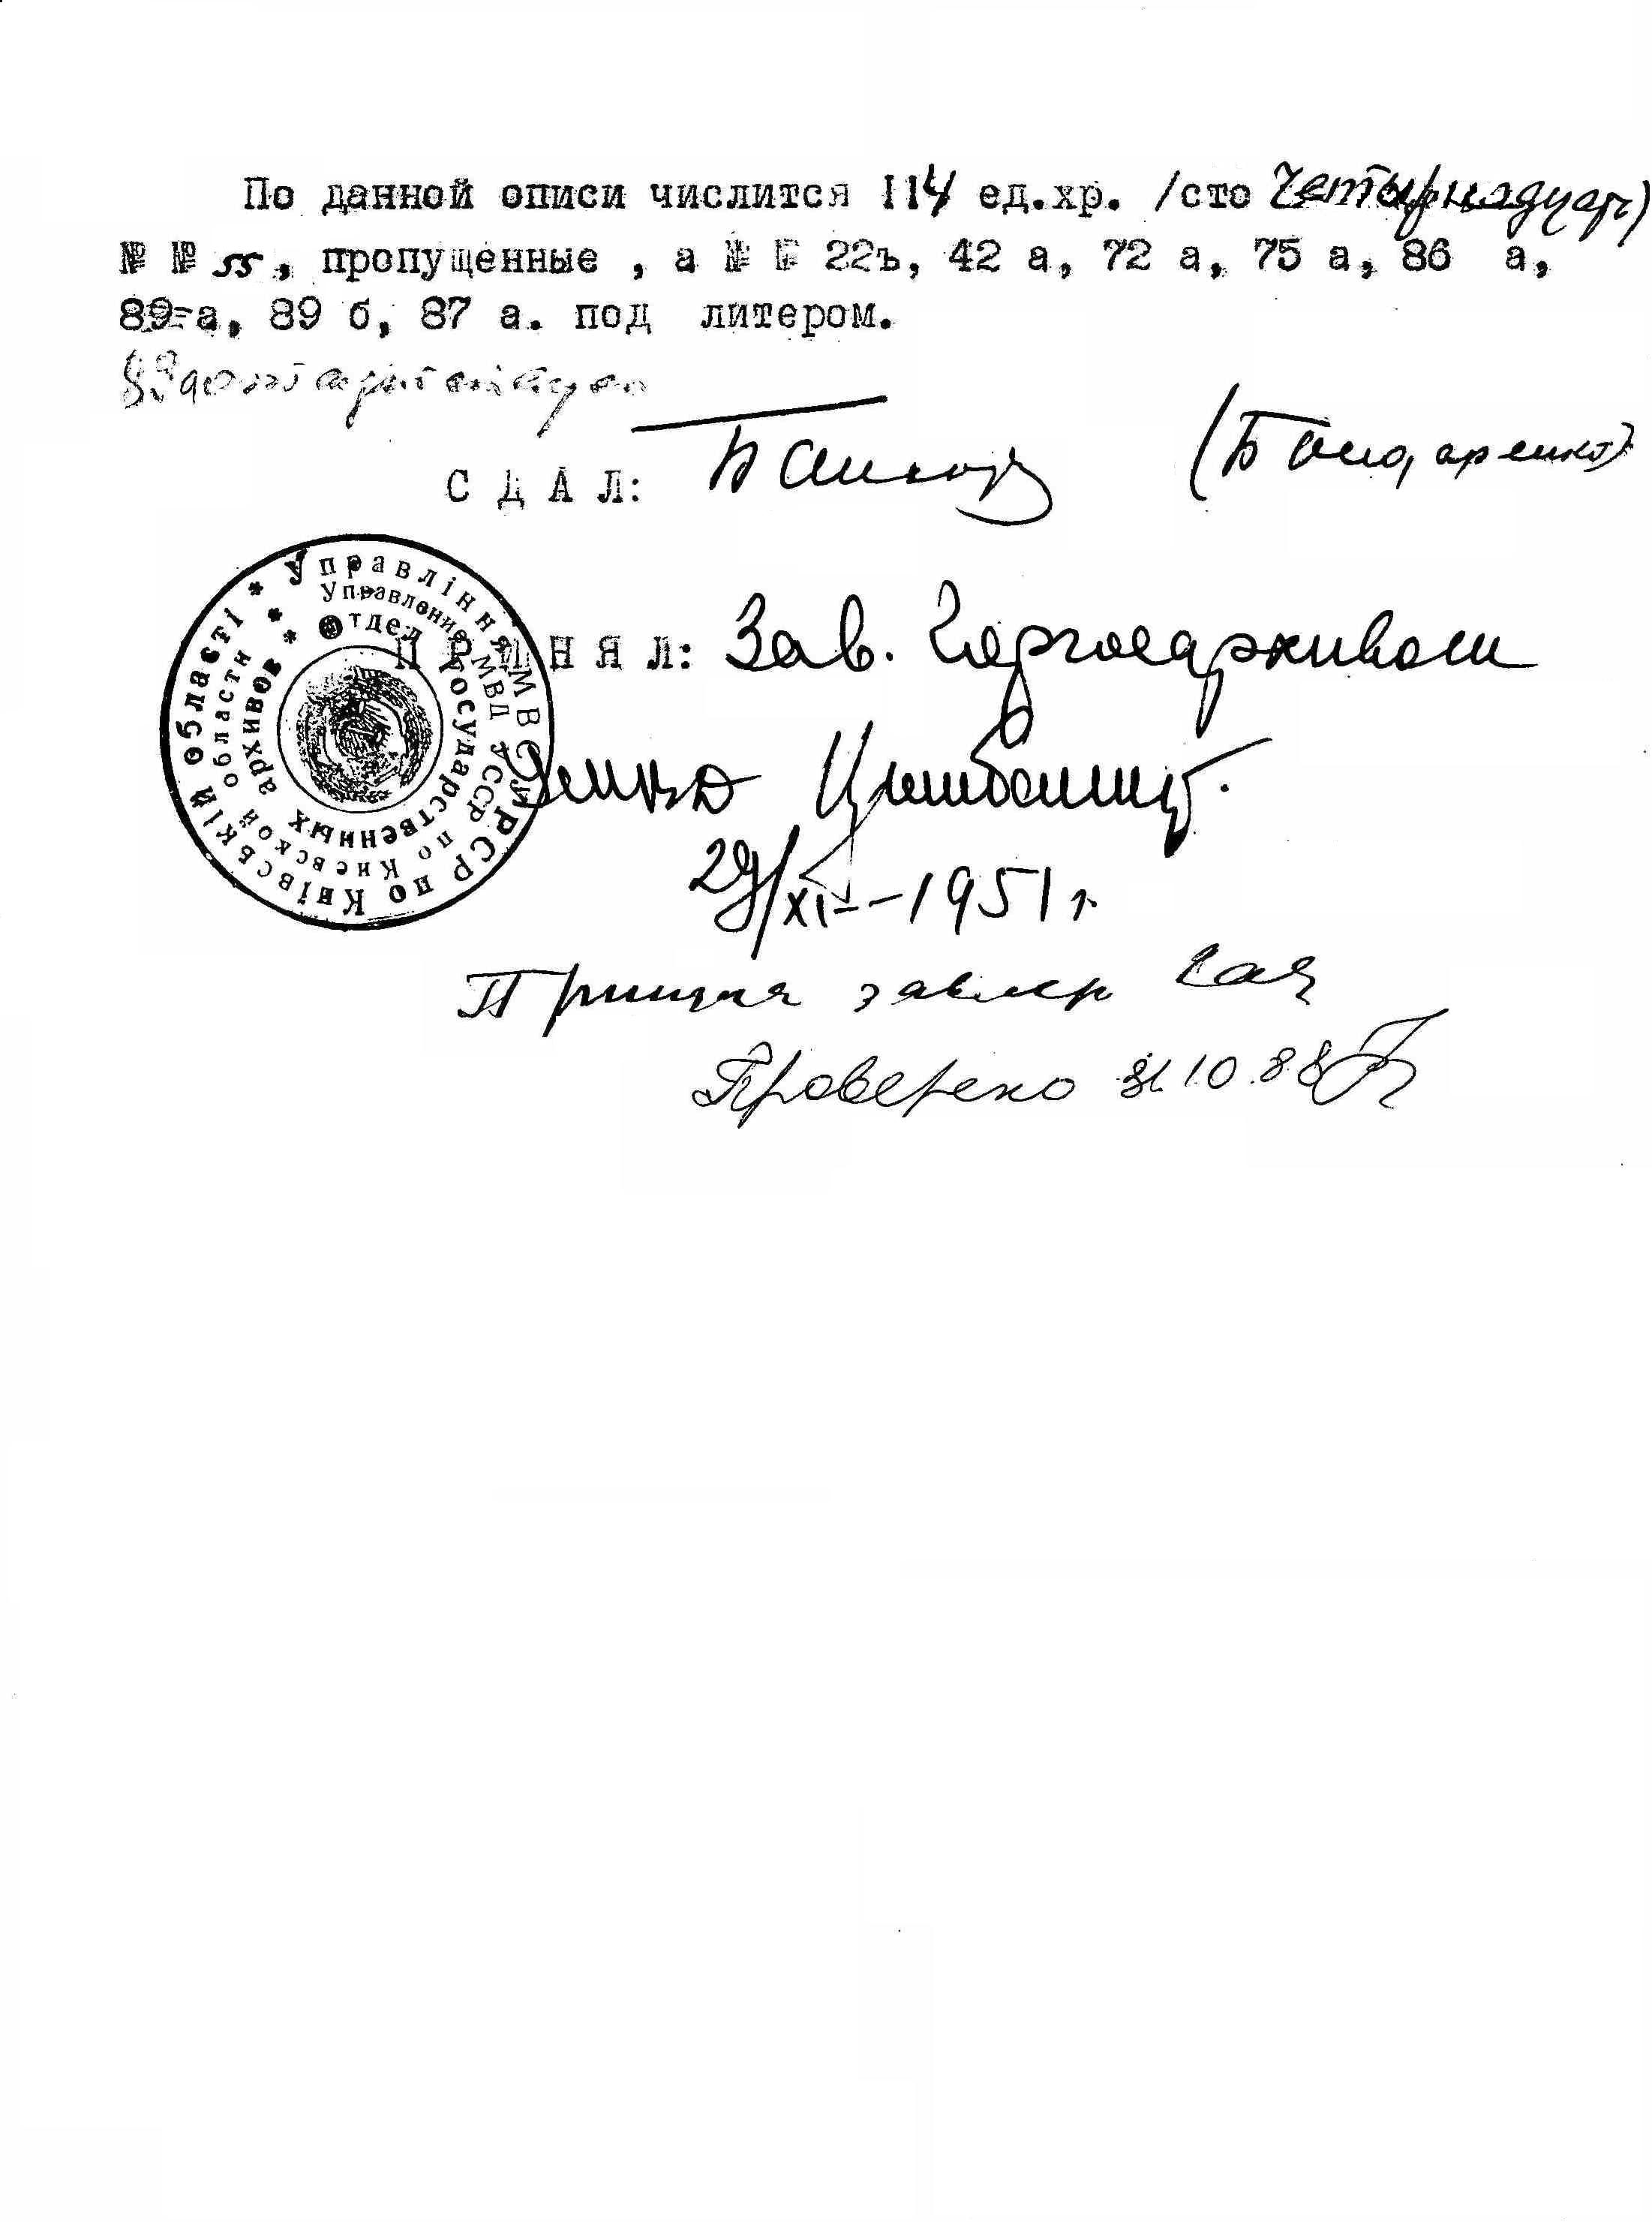 По данной описи числится 114 ед.хр. /сто четырнадцать)
№ № 55, пропущенные , а № № 22ъ, 42 а, 72 а, 75 а, 86 а,
89-а, 89 б, 87 а. под литером.
С Д А Л:
(Бондаренко)
Управління МВС УРСР по Київській області
Управление МВД УССР по Киевской области
Отдел государственных архивов
П Р И Н Я Л: Зав. Чергосархивом
29/XII-1951 г.
Проверено 31.10.88